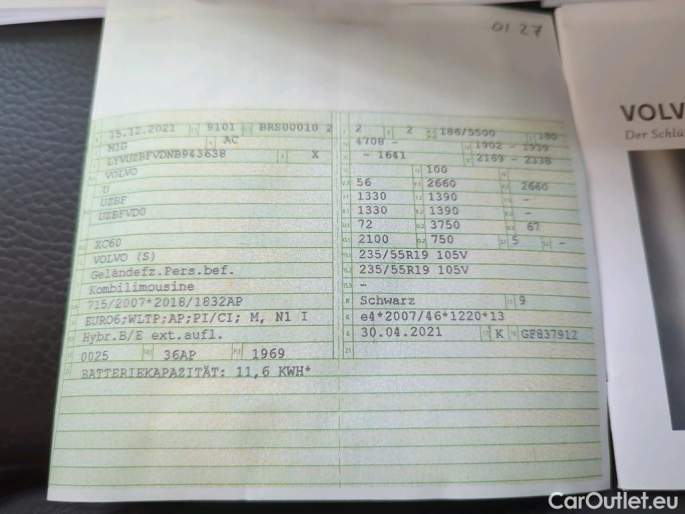 01 27
15.12.2021 9101 BRS00010 2
M1G AC
LYVUZBFVDNB943638 X
VOLVO
U
UZBF
UZBFVD0
XC60
VOLVO (S)
Geländefz.Pers.bef.
Kombilimousine
715/2007*2018/1832AP
EURO6;WLTP;AP;PI/CI; M, N1 I
Hybr.B/E ext.aufl.
0025 36AP 1969
BATTERIEKAPAZITÄT: 11,6 KWH*
2 2 186/5500 180
4708 - 1902 - 1999
- - 1641 2169 - 2338
100
56 2660 2660
1330 1390 -
1330 1390 -
72 3750 67
2100 750 5 -
235/55R19 105V
235/55R19 105V
-
Schwarz 9
e4*2007/46*1220*13
30.04.2021 K GF837912
VOLV
Der Schlü
CarOutlet.eu